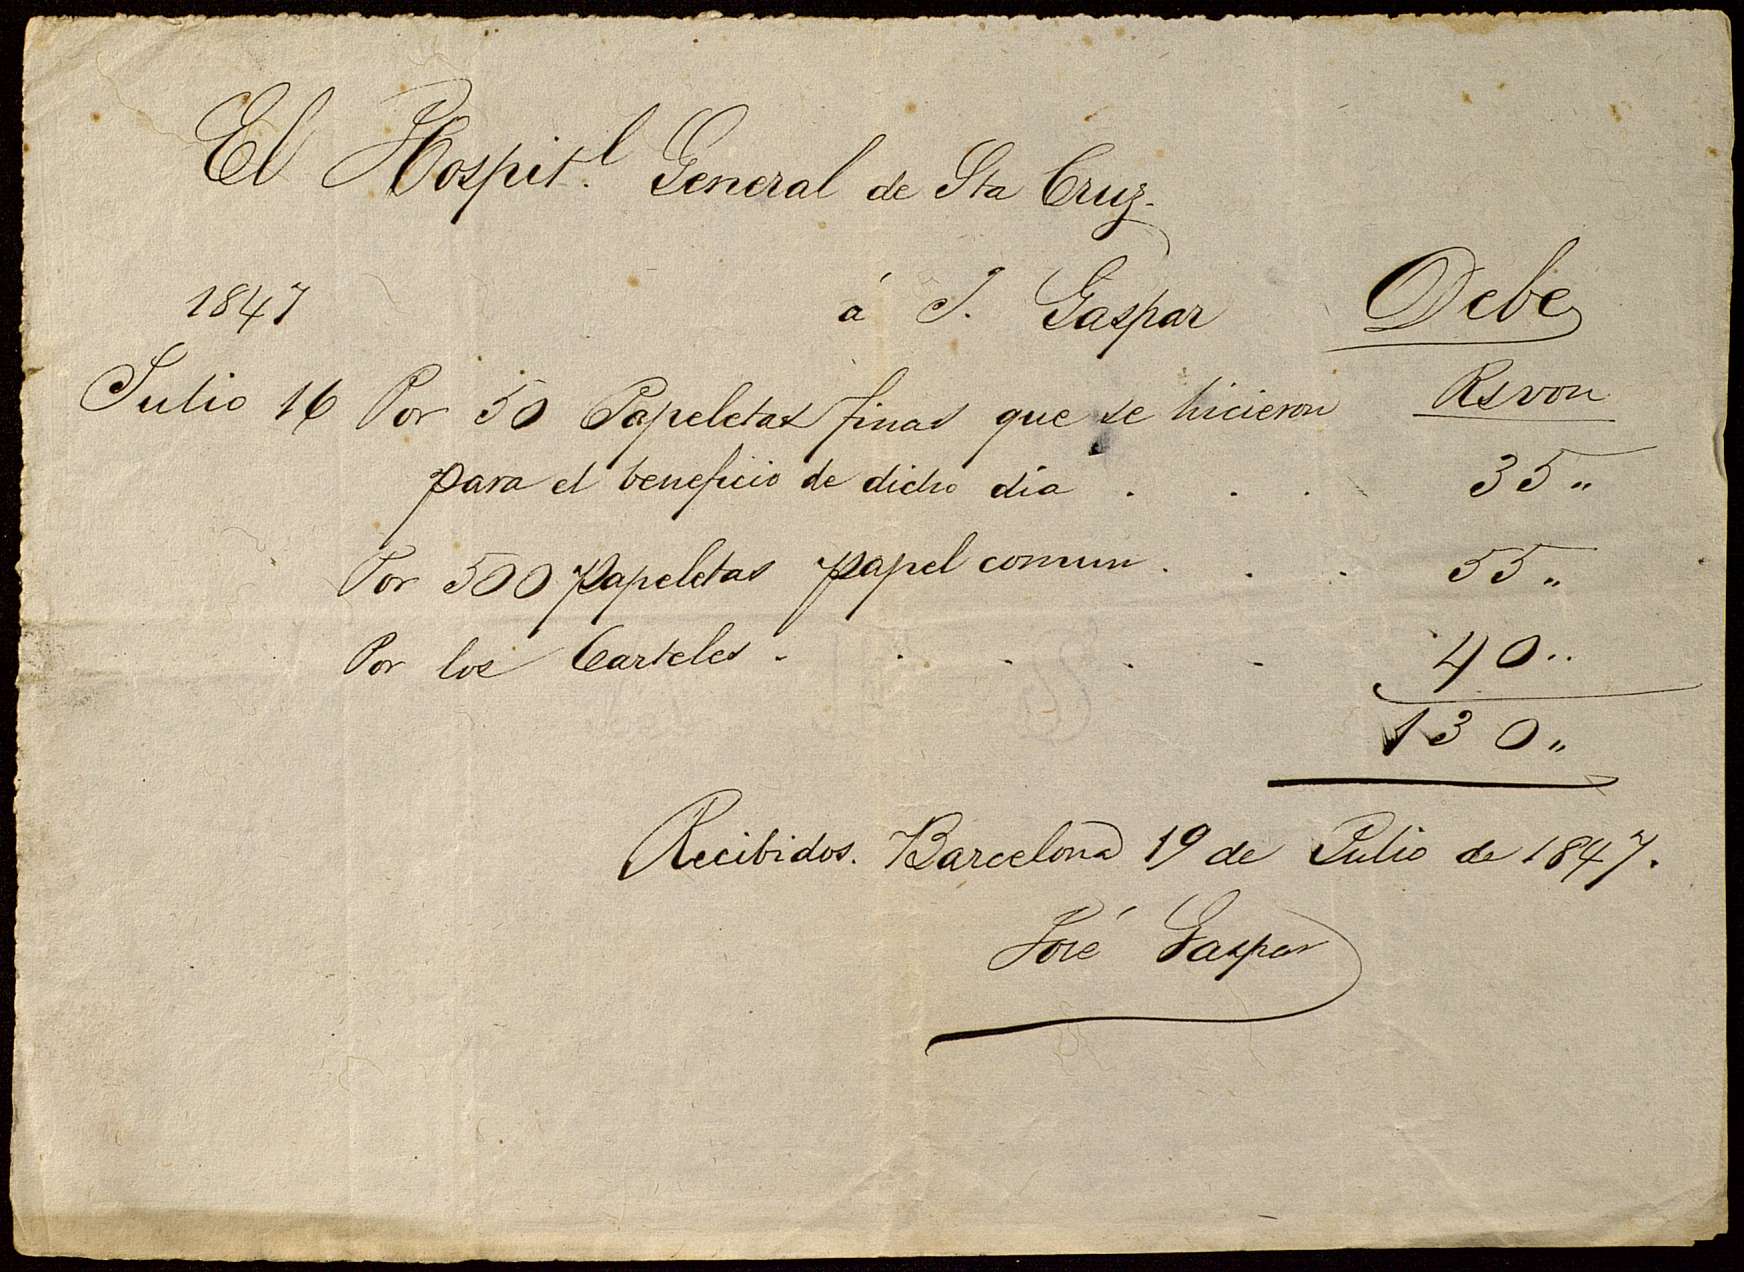 El Hospit.l General de Sta Cruz.
1847 á J. Gaspar Debe
Julio 16 Por 50 Papeletas finas que se hicieron Rs von
para el beneficio de dicho dia . . . 35 "
Por 500 papeletas papel comun . . . 55 "
Por los Carteles . . . . . 40 "
130 "
Recibidos. Barcelona 19 de Julio de 1847.
José Gaspar